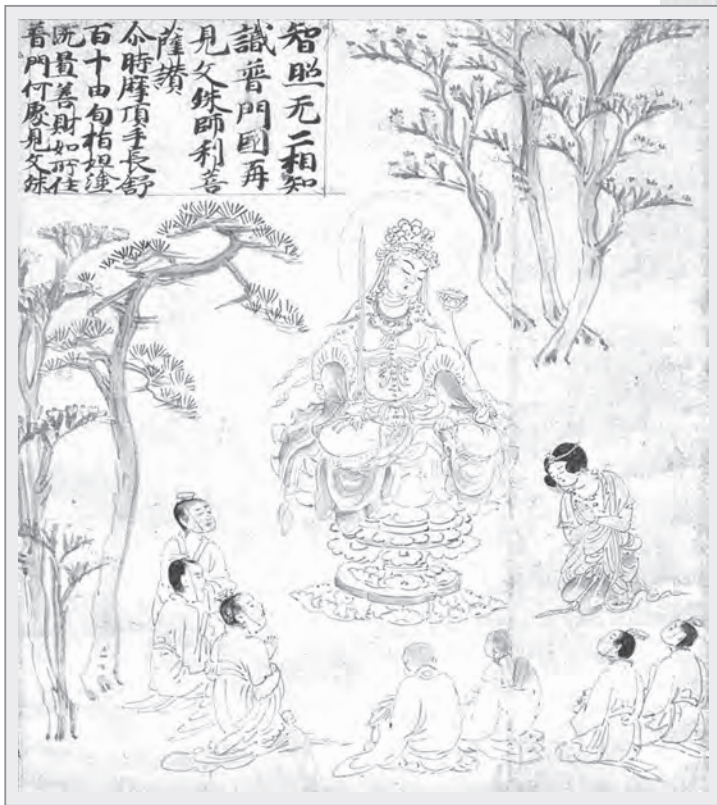 智照无二相知
識普門國再
見文殊師利菩
薩讃
尒時摩頂手長舒
百十由旬指坦塗
善財如所住
普門何處見文殊